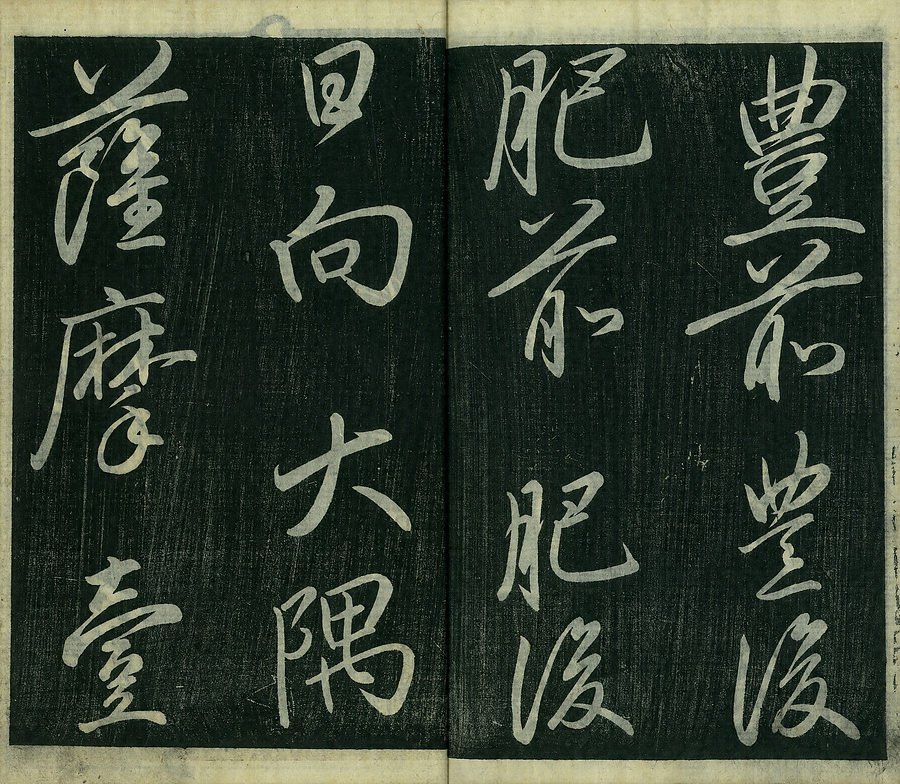 豊前豊後
肥前肥後
日向大隅
薩摩壹